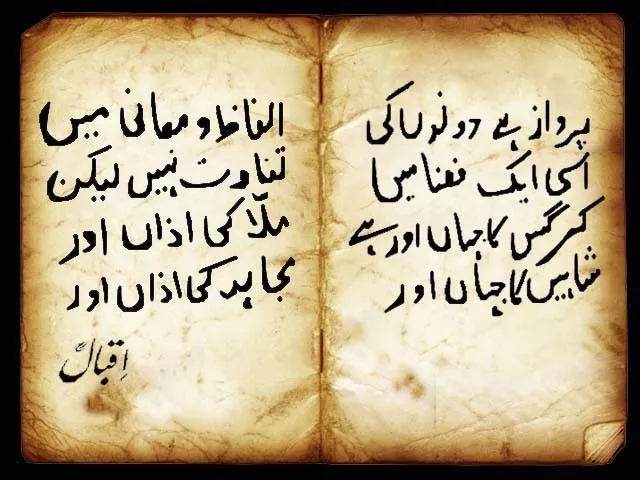 پرواز ہے دونوں کی
اسی ایک فضا میں
کرگس کا جہاں اور ہے
شاہیں کا جہاں اور
الفاظ و معانی میں
تفاوت نہیں لیکن
ملّا کی اذاں اور
مجاہد کی اذاں اور
اقبالؒ